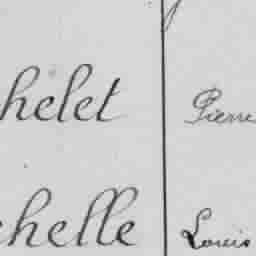 helet Pierre
chelle Louis